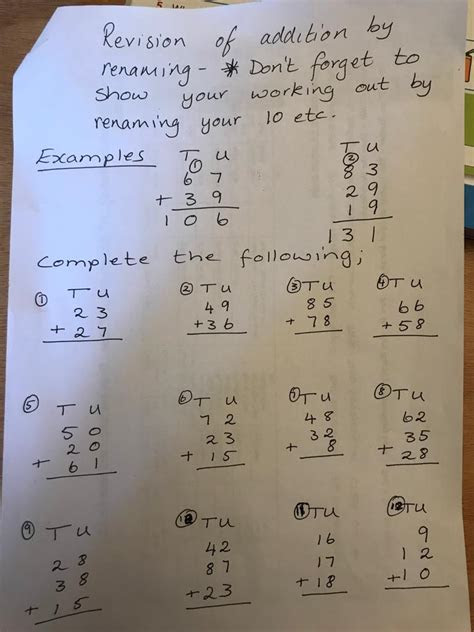 Revision of addition by
renaming - * Don't forget to
show your working out by
renaming your 10 etc.
Examples T U T U
① ②
6 7 8 3
+ 3 9 2 9
1 0 6 1 9
1 3 1
Complete the following;
① T U ② T U ③ T U ④ T U
2 3 4 9 8 5 6 6
+ 2 7 + 3 6 + 7 8 + 5 8
⑤ T U ⑥ T U ⑦ T U ⑧ T U
5 0 7 2 4 8 6 2
2 0 2 3 3 2 3 5
+ 6 1 + 1 5 + 8 + 2 8
⑨ T U ⑩ T U ⑪ T U ⑫ T U
2 8 4 2 1 6 9
3 8 8 7 1 7 1 2
+ 1 5 + 2 3 + 1 8 + 1 0